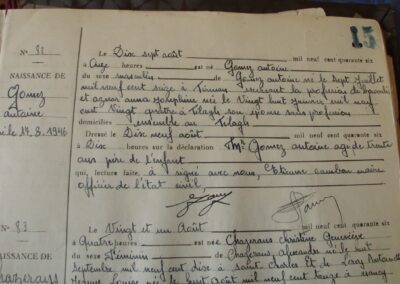 15
N° 82
NAISSANCE DE
Gomez
antoine
le 17.8.1946
Le Dix sept août mil neuf cent quarante six
à onze heures est né Gomez antoine
du sexe masculin de Gomez antoine né le sept Juillet
mil neuf cent seize à exerçant la profession de
et aznar anna Joséphine née le Vingt huit Janvier mil neuf
cent Vingt quatre à Télagh son épouse sans profession
domiciliés ensemble au Télagh
Dressé le Dix neuf août mil neuf cent quarante six
à Dix heures sur la déclaration de Mr Gomez antoine agé de trente
ans père de l'enfant
qui, lecture faite, a signé avec nous, Etienne maire
officier de l'état civil,
N° 83
Le Vingt et un Août mil neuf cent quarante six
à Quatre heures est née Chazerans Christine Geneviève
du sexe féminin de Chazerans Alexandre né le huit
septembre mil neuf cent dix à Saint Charles et de
née le sept Août mil neuf cent à nancy
Chazerans